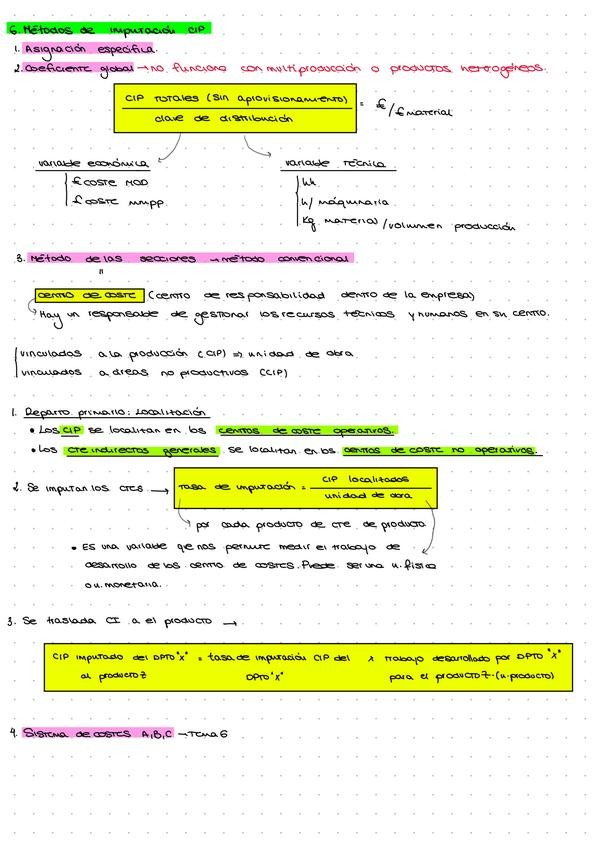 6. Métodos de imputación CIP
1. Asignación específica.
2. Coeficiente global → no funciona con multiproducción o productos heterogéneos.
CIP TOTALES (sin aprovisionamiento) = €/€ material
clave de distribución
variable económica
€ COSTE MOD
€ COSTE MMPP.
variable TÉCNICA
hh.
h/ máquinaria
Kg material / volumen producción
3. Método de las secciones → método convencional
"
CENTRO DE COSTE (centro de responsabilidad dentro de la empresa)
Hay un responsable de gestionar los recursos técnicos y humanos en su centro.
vinculados a la producción (CIP) ⇒ unidad de obra
vinculados a áreas no productivos (CIP)
1. Reparto primario: Localización
• Los CIP se localizan en los centros de coste operativos.
• Los CTE indirectos generales se localizan en los centros de coste no operativos.
2. Se imputan los CTES. → Tasa de imputación = CIP localizados
unidad de obra
por cada producto de CTE de producto
• Es una variable qe nos permite medir el trabajo de
desarrollo de los centro de costes. Puede ser una u. física
o u. monetaria.
3. Se traslada CI a el producto →
CIP imputado del DPTO "X" = tasa de imputación CIP del x Trabajo desarollado por DPTO "X"
al producto z DPTO "X" para el producto z. (u. producto)
4. Sistema de costes A,B,C → Tema 6